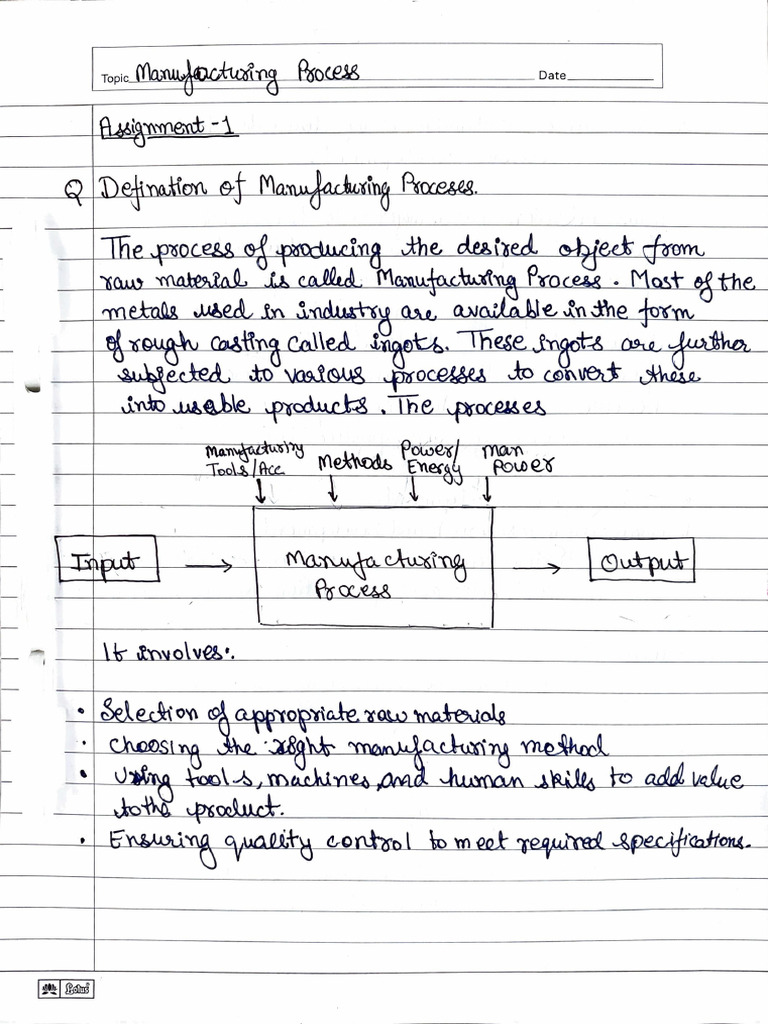 Topic Manufacturing Process Date
Assignment-1
Q Defination of Manufacturing Proceses.
The process of producing the desired object from
raw material is called Manufacturing Process. Most of the
metals used in industry are available in the form
of rough casting called ingots. These ingots are further
subjected to various processes to convert these
into useble products. The processes
Manufacturing Tools/Acc
Methods
Power/ Energy
man Power
Input → Manufacturing → Output
Process
It involves:.
• Selection of appropriate raw materials
• choosing the right manufacturing method
• Using tools, machines, and human skills to add value
to the product.
• Ensuring quality control to meet required specifications.
Lotus